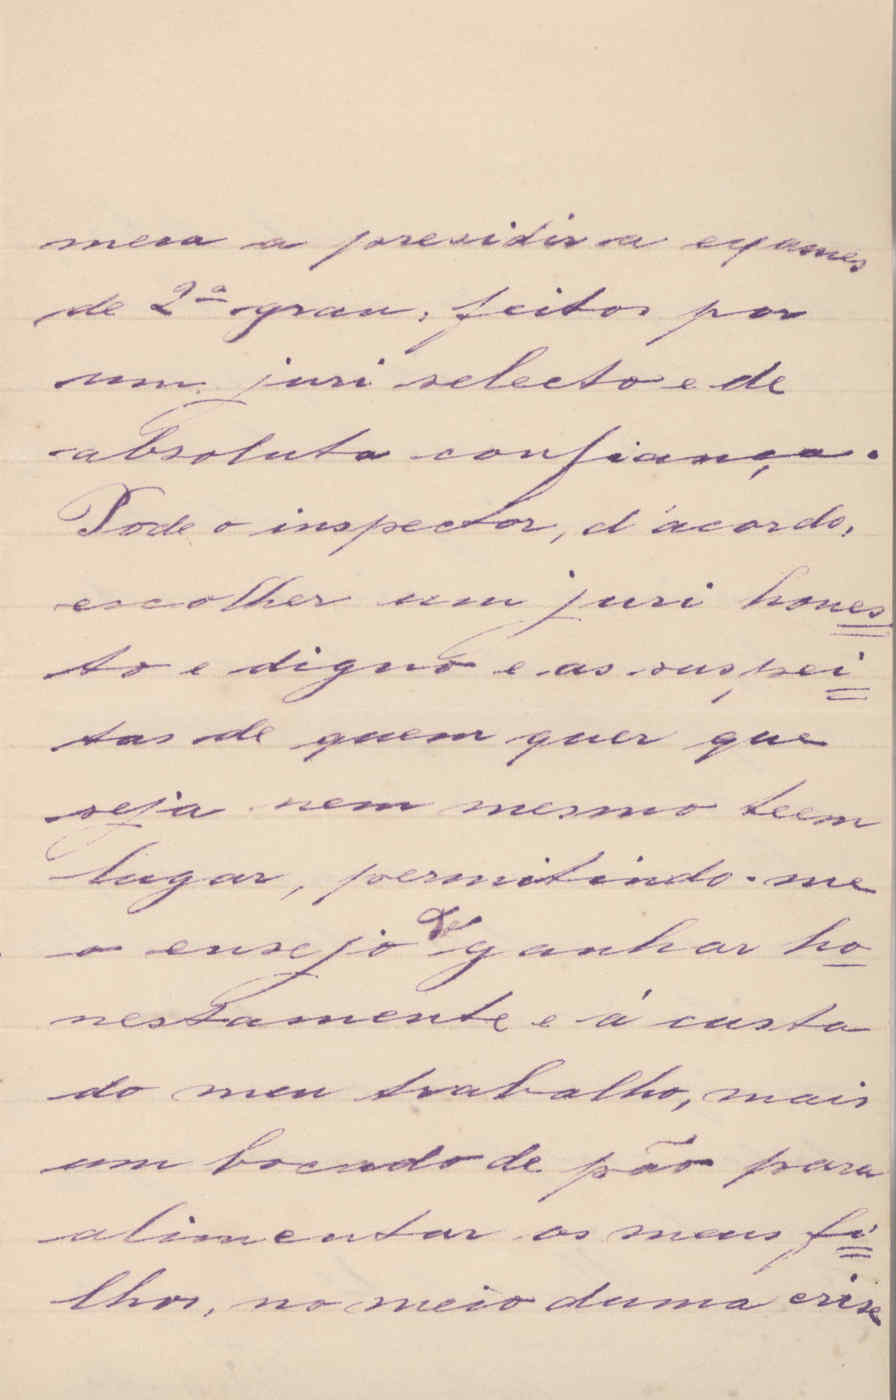 mesa a presidir a exames
de 2º grau, feitos por
um juri selecto e de
absoluta confiança.
Pode o inspector, d'acordo,
escolher um juri hones
to e digno e as suspei
tas de quem quer que
seja nem mesmo teem
lugar, permitindo-me
o ensejo de ganhar ho
nestamente e á custa
do meu trabalho, mais
um bocado de pão para
alimentar os meus fi
lhos, no meio duma crise